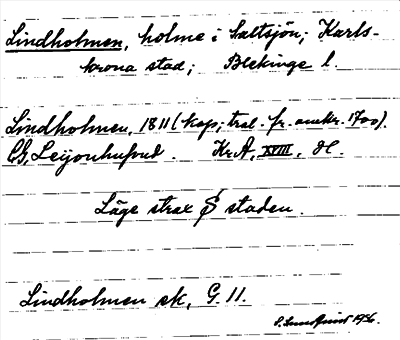 Lindholmen, holme i Saltsjön; Karls-
krona stad; Blekinge l.
Lindholmen, 1811 (kop; trol. fr. omkr. 1700).
CG, Leijonhufvud. KrA, XVIII, H.
Läge strax S staden.
Lindholmen sk, G. 11.
S. Lundquist 1936.